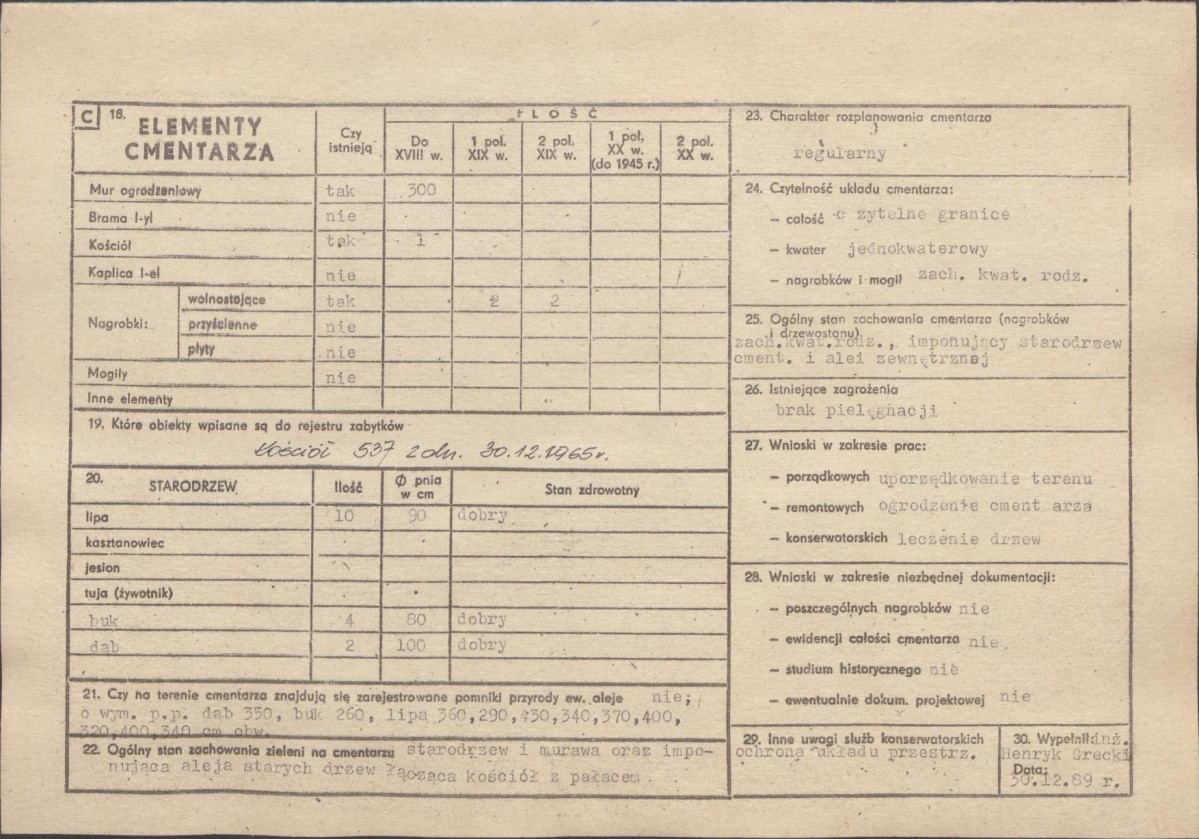 C 18. ELEMENTY CMENTARZA
Czy istnieją
ILOŚĆ
Do XVIII w.
1 poł. XIX w.
2 poł. XIX w.
1 poł. XX w. (do 1945 r.)
2 poł. XX w.
Mur ogrodzeniowy tak 300
Brama I-yl nie
Kościół tak 1
Kaplica I-el nie
Nagrobki:
wolnostojące tak 2 2
przyścienne nie
płyty nie
Mogiły nie
Inne elementy
19. Które obiekty wpisane są do rejestru zabytków
Kościół 537 z dn. 30.12.1965 r.
20. STARODRZEW Ilość Ø pnia w cm Stan zdrowotny
lipa 10 90 dobry
kasztanowiec
jesion
tuja (żywotnik)
buk 4 80 dobry
dąb 2 100 dobry
21. Czy na terenie cmentarza znajdują się zarejestrowane pomniki przyrody ew. aleje nie;
o wym. p.p. dąb 350, buk 260, lipa 360,290,430,340,370,400,
320,400,340 cm obw.
22. Ogólny stan zachowania zieleni na cmentarzu starodrzew i murawa oraz impo-
nująca aleja starych drzew łącząca kościół z pałacem
23. Charakter rozplanowania cmentarza
regularny
24. Czytelność układu cmentarza:
– całość c zytelne granice
– kwater jednokwaterowy
– nagrobków i mogił zach. kwat. rodz.
25. Ogólny stan zachowania cmentarza (nagrobków
i drzewostanu)
zach.kwat.rodz., imponujący starodrzew
cment. i alei zewnętrznej
26. Istniejące zagrożenia
brak pielęgnacji
27. Wnioski w zakresie prac:
– porządkowych uporządkowanie terenu
– remontowych ogrodzenie cment arza
– konserwatorskich leczenie drzew
28. Wnioski w zakresie niezbędnej dokumentacji:
– poszczególnych nagrobków nie
– ewidencji całości cmentarza nie
– studium historycznego nie
– ewentualnie dokum. projektowej nie
29. Inne uwagi służb konserwatorskich
ochrona układu przestrz.
30. Wypełnił inż.
Henryk Grecki
Data:
30.12.89 r.